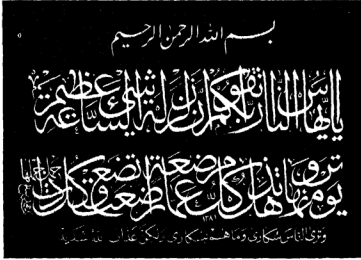 بسم الله الرحمن الرحيم
يا أيها الناس اتقوا ربكم إن زلزلة الساعة شيء عظيم
يوم ترونها تذهل كل مرضعة عما أرضعت وتضع كل ذات حمل حملها
وترى الناس سكارى وما هم بسكارى ولكن عذاب الله شديد